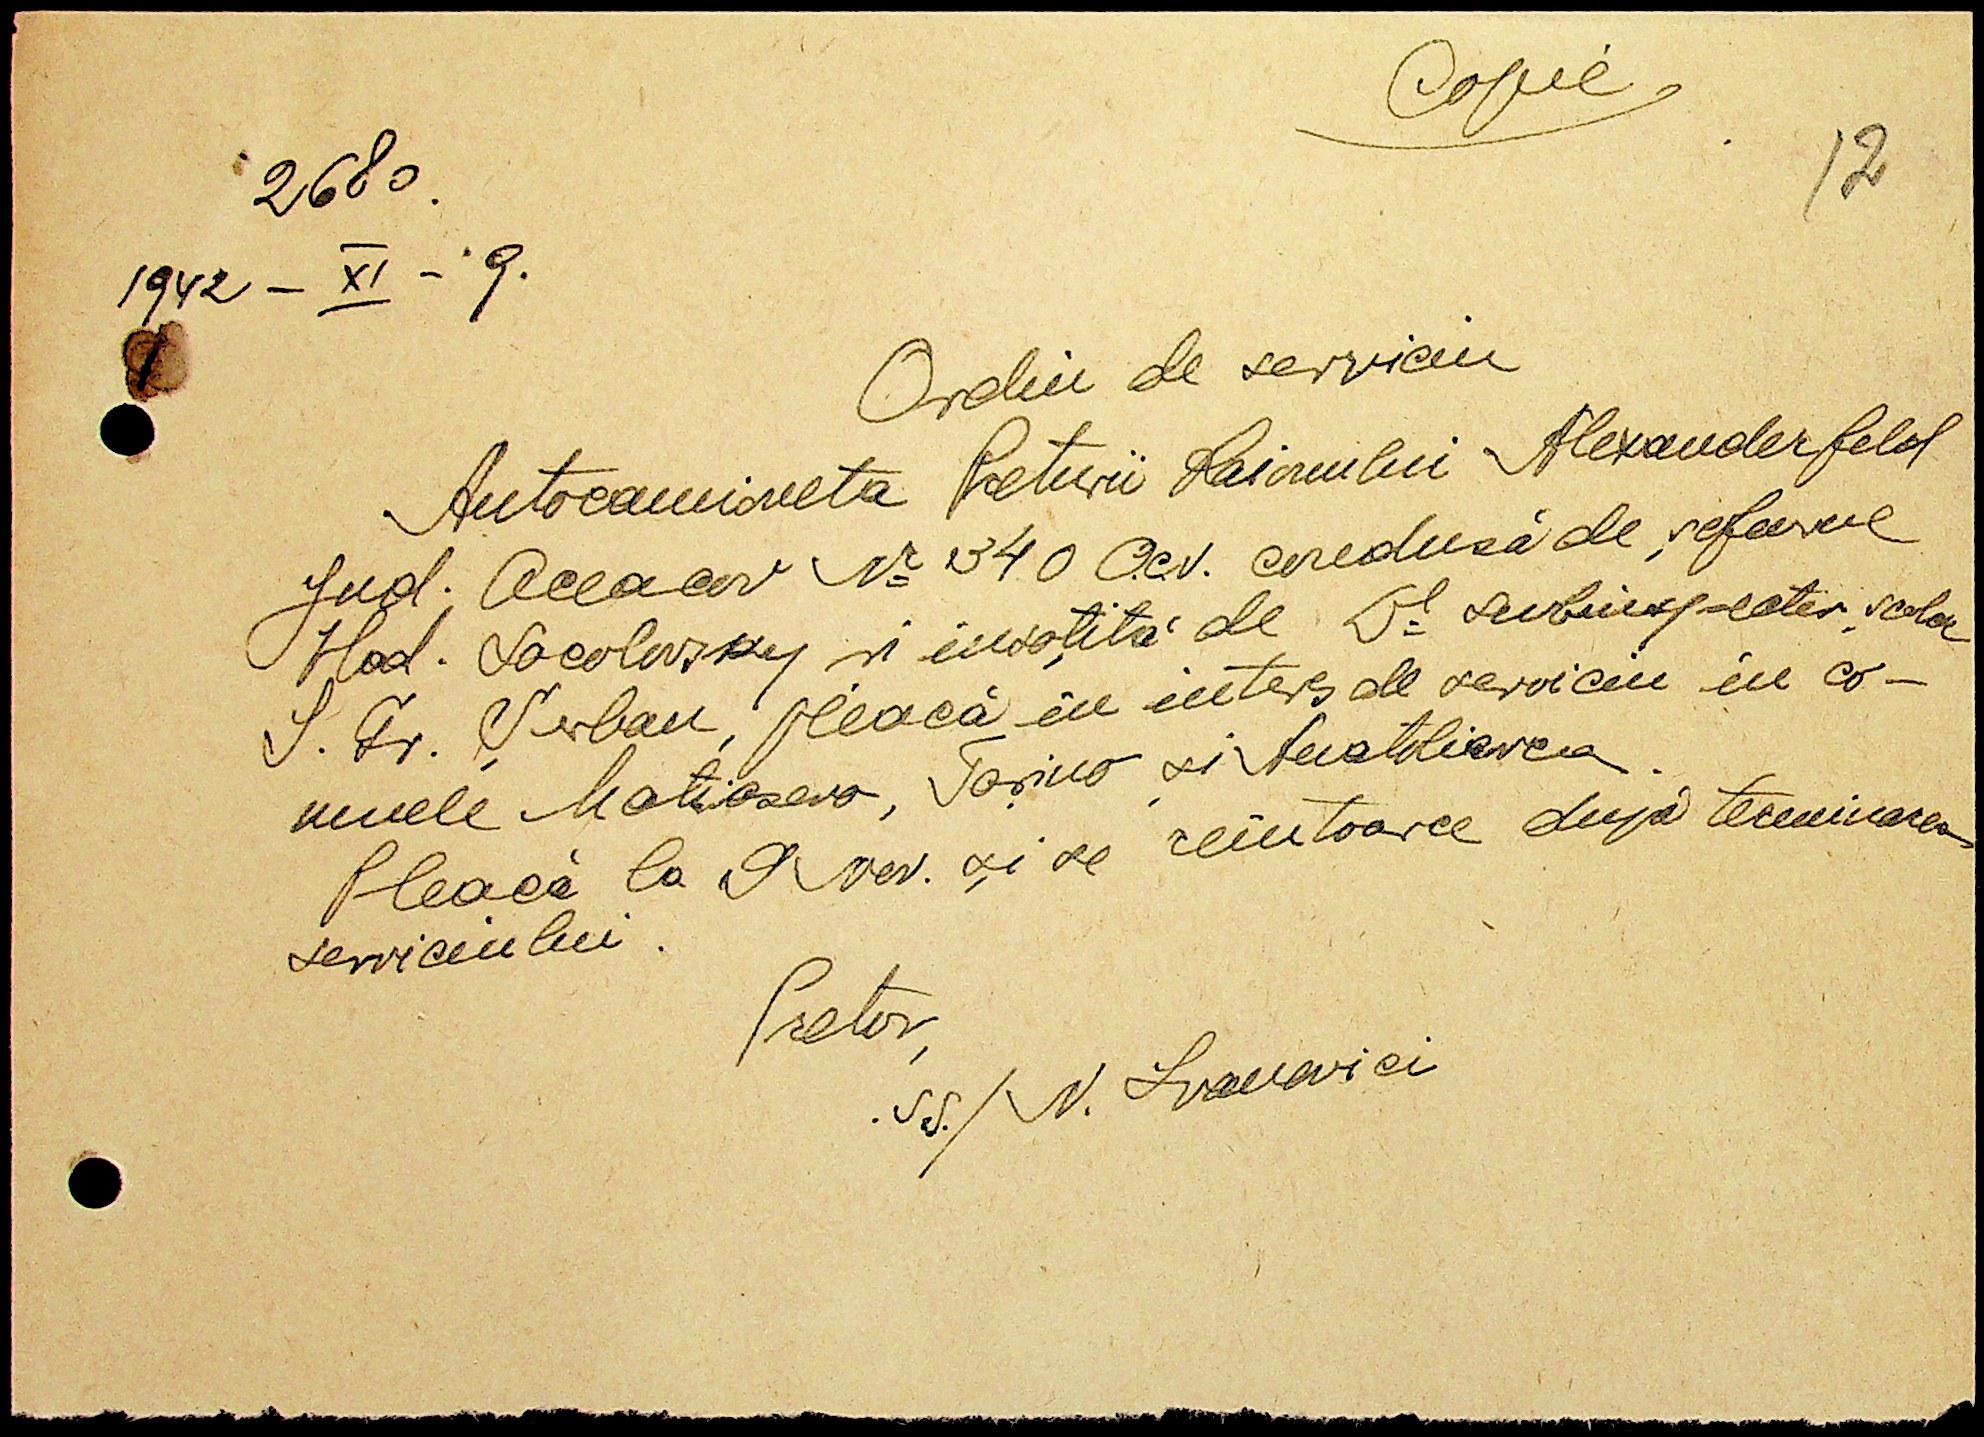 Copie
12
2680.
1942 – XI – 9.
Ordin de serviciu
Autocamioneta Preturii Raionului Alexanderfeld
Jud. Oceacov Nr 340 Ocv. condusă de șeful
Vlad. Socolovsky și însoțită de Dl subinspector școlar
S. Gr. Șerban, pleacă în interes de serviciu în co-
munele Matiasevo, Tarino și Anatolievca.
Pleacă la 9 nov. și se reîntoarce după terminarea
serviciului.
Pretor,
ss./ N. Ivanovici